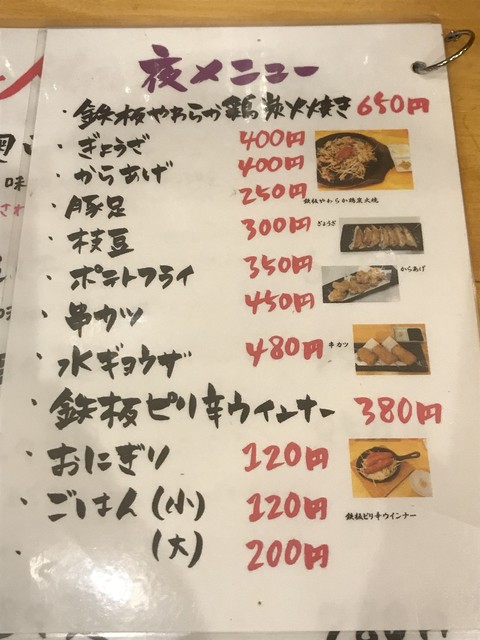 夜メニュー
・鉄板やわらか鶏炭火焼き 650円
・ぎょうざ 400円
・からあげ 400円
・豚足 250円
・枝豆 300円
・ポテトフライ 350円
・串カツ 450円
・水ギョウザ 480円
・鉄板ピリ辛ウインナー 380円
・おにぎり 120円
・ごはん(小) 120円
・(大) 200円
鉄板やわらか鶏炭火焼
ぎょうざ
からあげ
串カツ
鉄板ピリ辛ウインナー
味
さわ